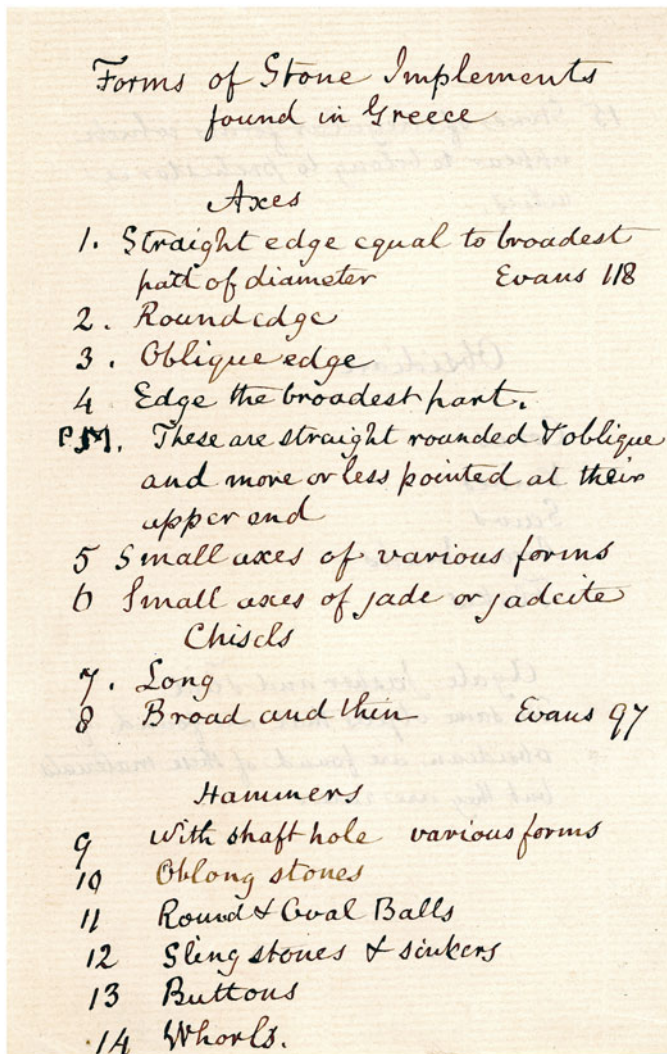 Forms of Stone Implements
found in Greece
Axes
1. Straight edge equal to broadest
part of diameter Evans 118
2. Round edge
3. Oblique edge
4 Edge the broadest part.
These are straight rounded & oblique
and more or less pointed at their
upper end
5 Small axes of various forms
6 Small axes of jade or jadeite
Chisels
7. Long
8 Broad and thin Evans 97
Hammers
9 With shaft hole various forms
10 Oblong stones
11 Round & Oval Balls
12 Sling stones & sinkers
13 Buttons
14 Whorls.